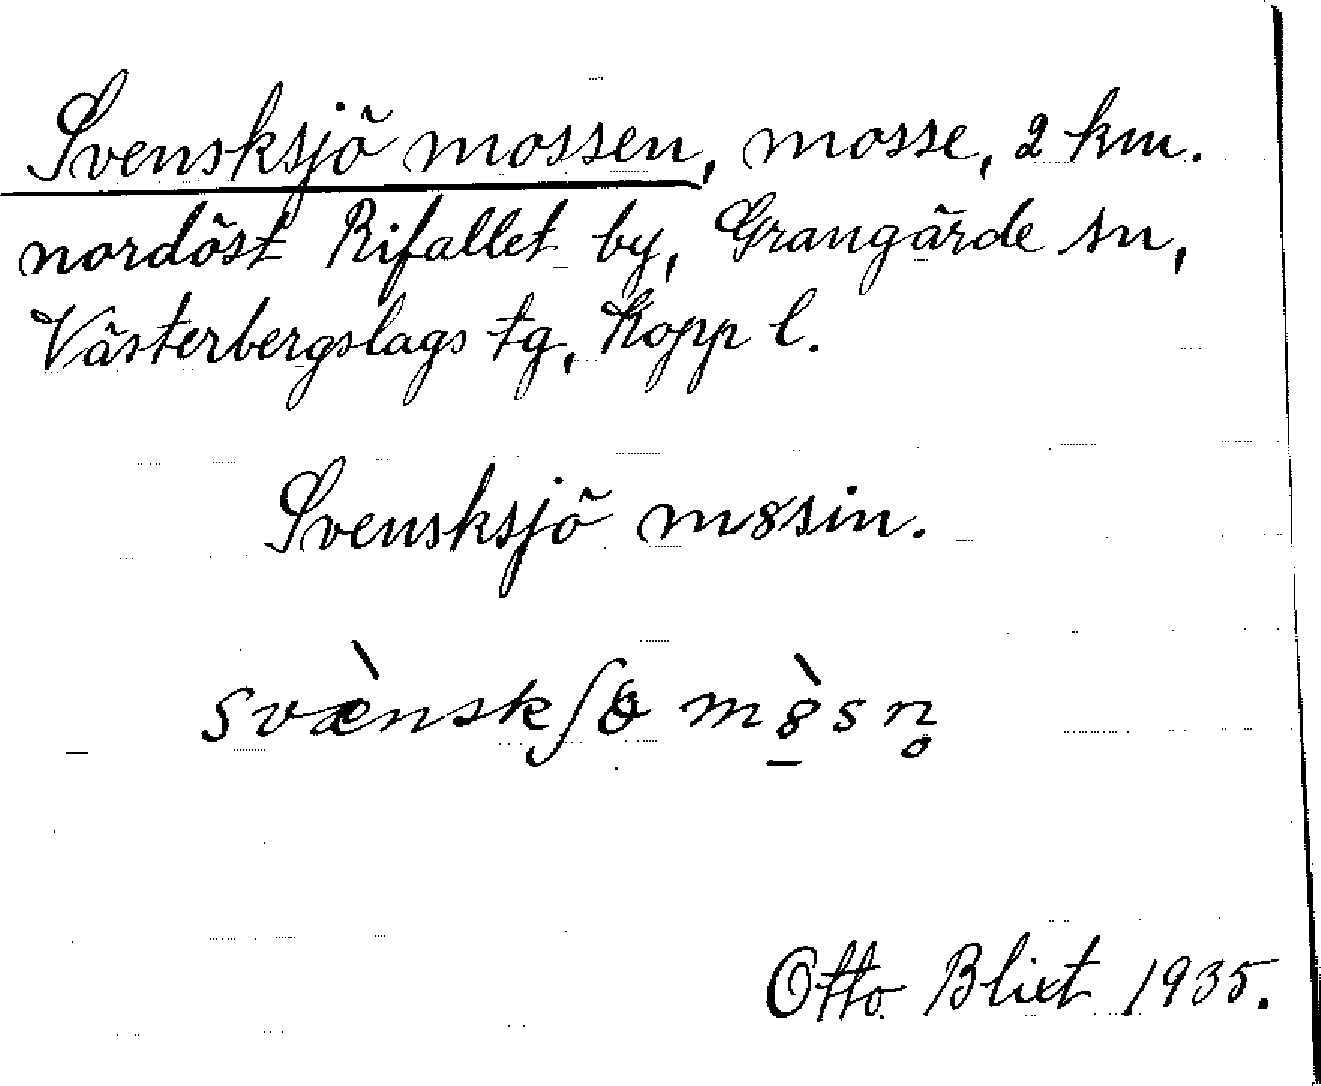 Svensksjö mossen, mosse, 2 km.
nordöst Rifallet by, Grangärde sn,
Västerbergslags tg, Kopp l.
Svensksjö m8sin.
svæ̀nskʃɵ m8̠̀sn̥
Otto Blixt 1935.